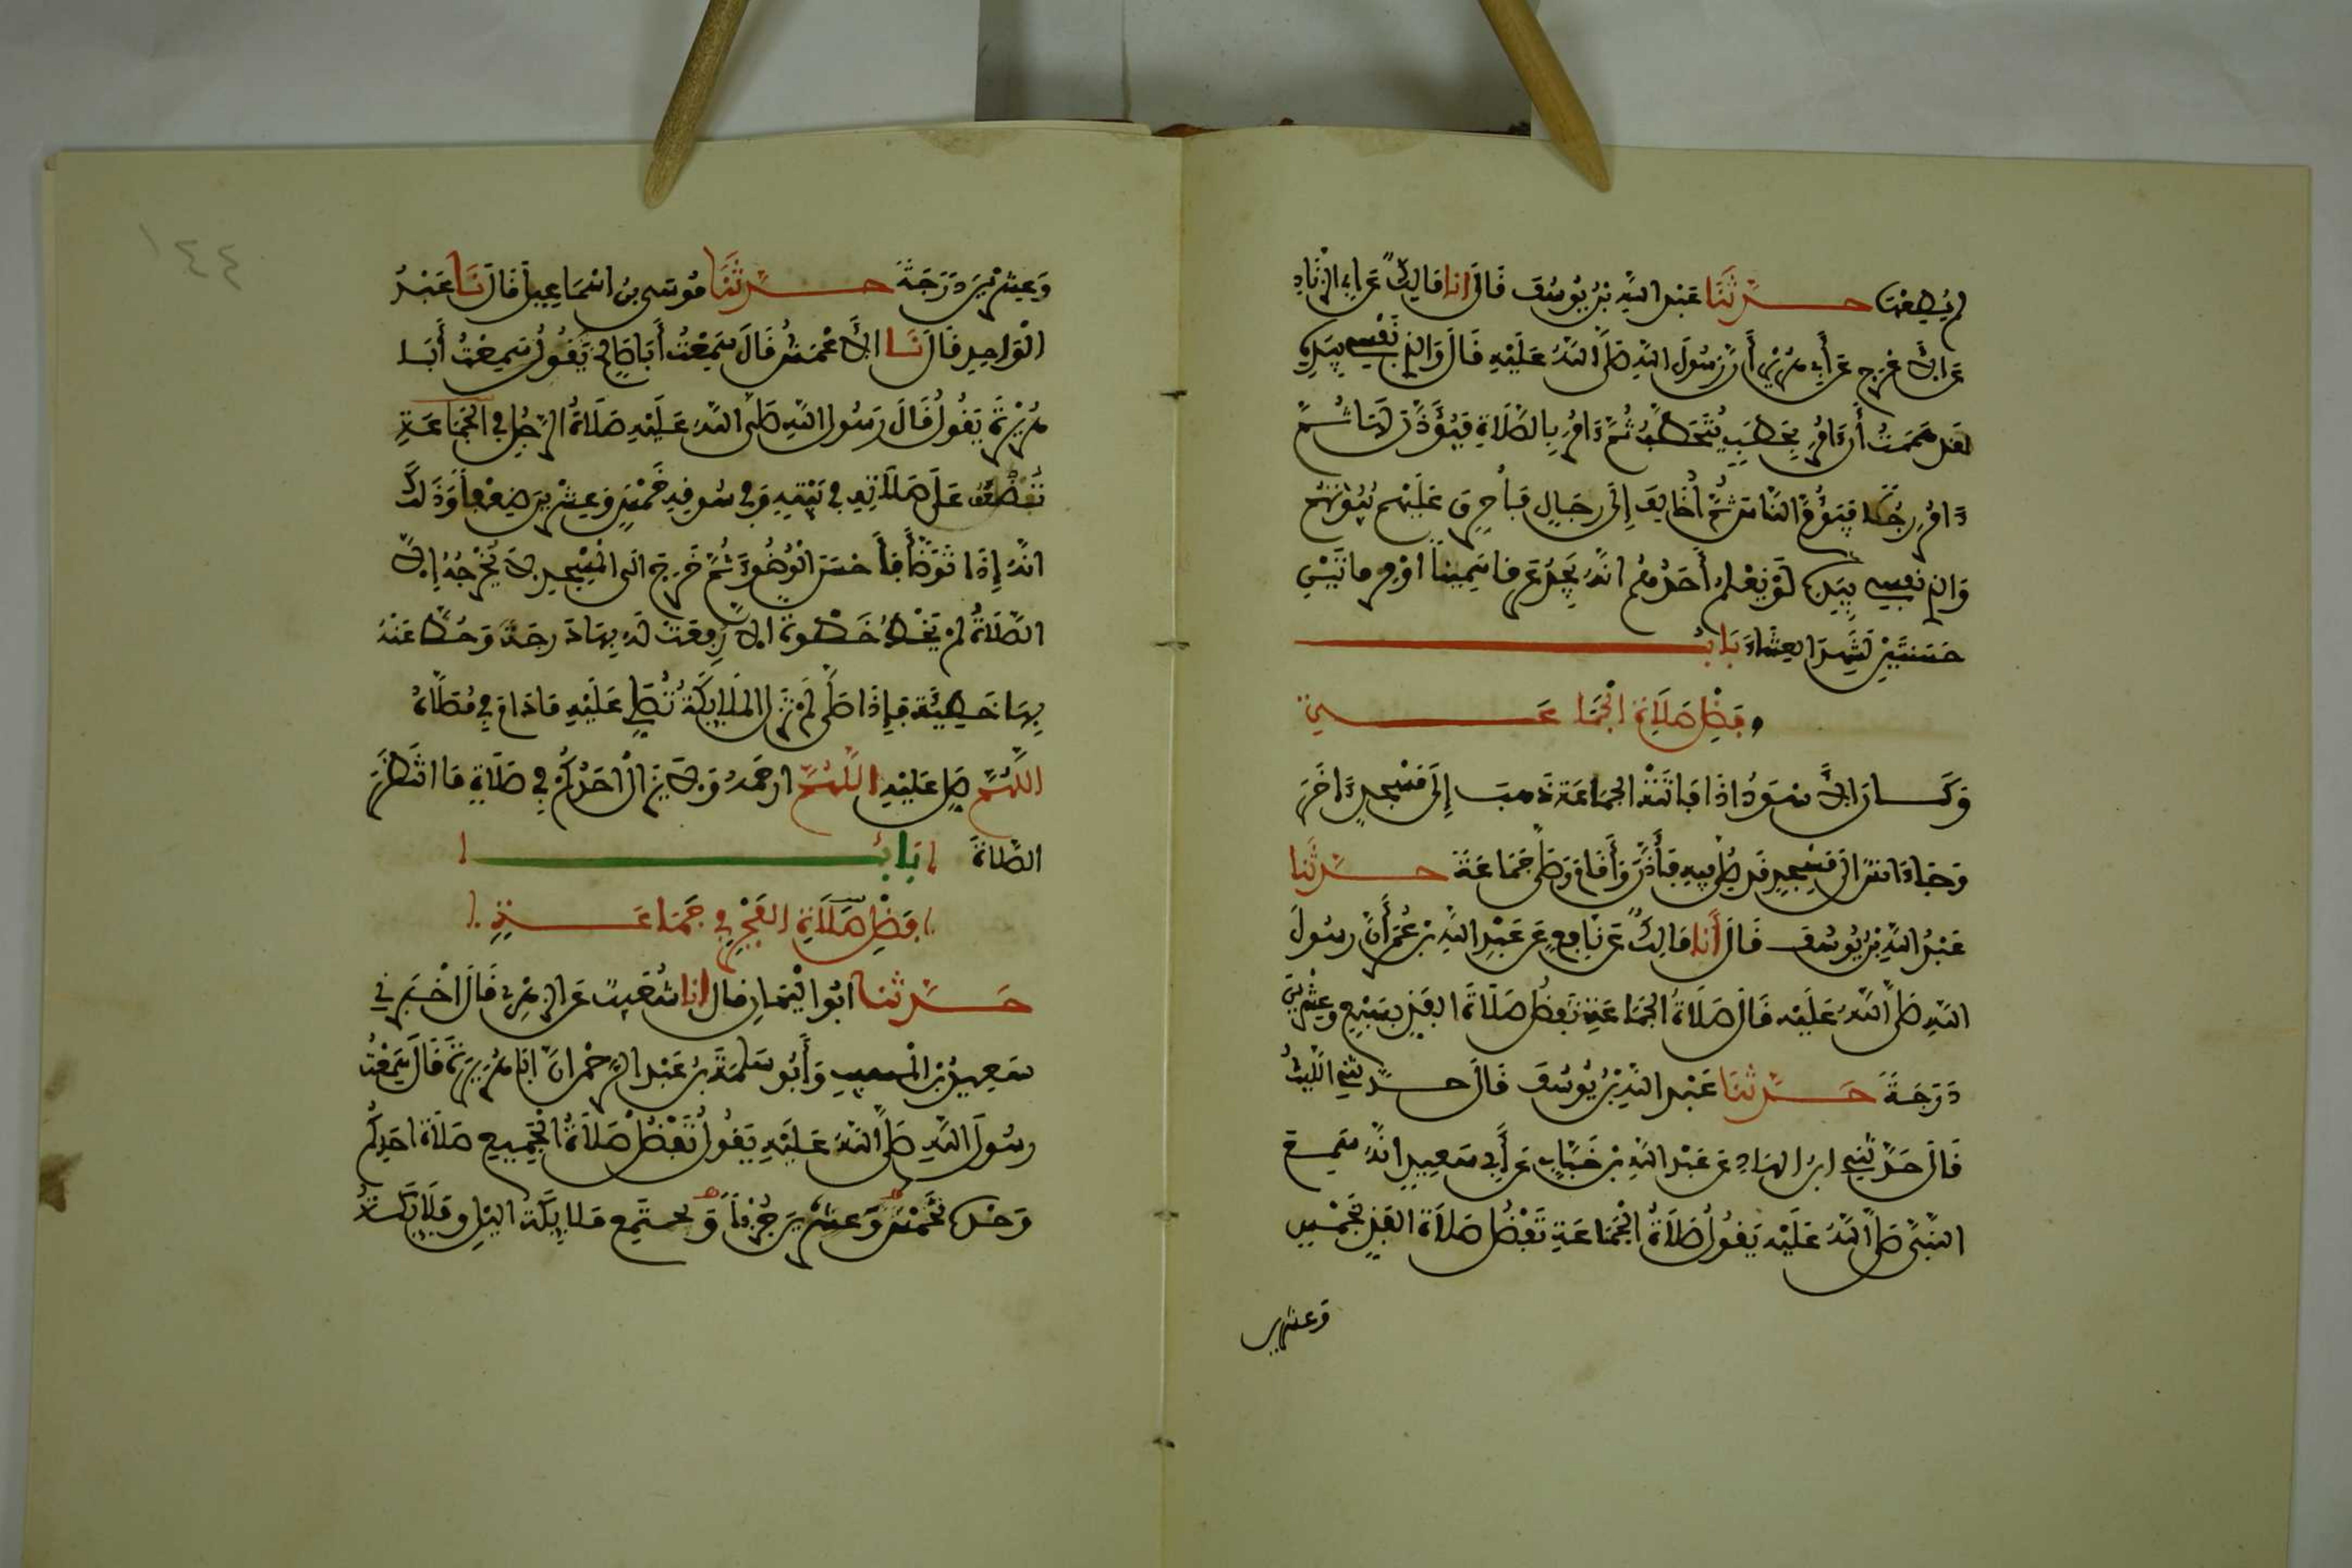 لم يُطِعْهَا حَدَّثَنَا عَبْدُ اللَّهِ بْنُ يُوسُفَ قَالَ انا مَالِكٌ عَنْ أَبِي الزِّنَادِ
عَنِ الأَعْرَجِ عَنْ أَبِي هُرَيْرَةَ أَنَّ رَسُولَ اللَّهِ صَلَّى اللَّهُ عَلَيْهِ قَالَ وَالذِي نَفْسِي بِيَدِهِ
لقد هَمَمْتُ أَن ءَامُرَ بِحَطَبٍ يُتَحَطَّبُ ثُمَّ ءَامُرُ بِالصَّلَاةِ فَيُؤَذَّنَ لَهَا ثُمَّ
ءَامُرَ رَجُلًا فَيَؤُمَّ النَّاسَ ثُمَّ أُخَالِفَ إِلَى رِجَالٍ فَأُحَرِّقَ عَلَيْهِم بُيُوتَهُم
وَالذِي نَفْسِي بِيَدِهِ لَوْ يَعْلَمُ أَحَدُهُم انَّهُ يَجِدُ عَرْقًا سَمِينًا اوْ مِرْمَاتَيْنِ
حَسَنَتَيْنِ لَشَهِدَ العِشَاءَ بَابُ
فَضْلِ صَلَاةِ الْجَمَاعَةِ
وَكَانَ الأَسْوَدُ اذَا فَاتَتْهُ الجَمَاعَة ذَهَبَ إِلَى مَسْجِدٍ ءَاخَرَ
وَجَاءَ انَسٌ الَى مَسْجِدٍ قَد صُلِّيَ فِيهِ فَأَذَّنَ وَأَقَامَ وَصَلَّى جَمَاعَةً حَدَّثَنَا
عَبْدُ اللَّهِ بْنُ يُوسُفَ قَالَ أَنَا مَالِكٌ عَن نَّافِعٍ عَن عَبْدِ اللَّهِ بْنِ عُمَرَ أَنَّ رسُولَ
اللَّهِ صَلَّى اللَّهُ عَلَيْهِ قَالَ صَلَاةُ الجَمَاعَةِ تَفْضُلُ صَلَاةَ الفَذِّ بِسَبْعٍ وعِشْرِينَ
دَرَجَةً حَدَّثَنَا عَبْدُ اللَّهِ بْنُ يُوسُفَ قَالَ حَدَّثَنِي اللَّيْثُ
قَالَ حَدَّثَنِي ابْنُ الهَادِ عَن عَبْدِ اللَّهِ بْنِ خَبَّابٍ عَن أَبِي سَعِيدٍ انَّهُ سَمِعَ
النَّبِيَّ صَلَّى اللَّهُ عَلَيْهِ يَقُولُ صَلَاةُ الْجَمَاعَةِ تَفْضُلُ صَلَاةَ الفَذِّ بِخَمْسٍ
وَعشرين
١٤٤
وَعِشْرِينَ دَرَجَةً حَدَّثَنَا مُوسَى بْنُ اسْمَاعِيلَ قَالَ نَا عَبْدُ
الْوَاحِدِ قَالَ نَا الأَعْمَشُ قَالَ سَمِعْتُ أَبَا صَالِحٍ يَقُولُ سَمِعْتُ أَبَا
هُرَيْرَةَ يَقُولُ قَالَ رَسُولُ اللَّهِ صَلَّى اللَّهُ عَلَيْهِ صَلَاةُ الرَّجُلِ فِي الجَمَاعَةِ
تُضَعَّفُ عَلَى صَلَاتِهِ فِي بَيْتِهِ وَفِي سُوقِهِ خَمْسٍ وَعِشْرِينَ ضِعْفاً وَذَلِكَ
انَّهُ إِذَا تَوَضَّأَ فَأَحْسَنَ الْوُضُوءَ ثُمَّ خَرَجَ الَى الْمَسْجِدِ لاَ يُخْرِجُهُ إِلاَّ
الصَّلَاةُ لَمْ يَخْطُ خَطْوَةً الاَّ رُفِعَتْ لَهُ بِهَا دَرجَةٌ وَحُطَّ عَنْهُ
بِهَا خَطِيئَةٌ فَإِذَا صَلَّى لَمْ تَزَلِ المَلَايِكَةُ تُصَلِّي عَلَيْهِ مَا دَامَ فِي مُصَلَّاهُ
اللَّهُمَّ صَلِّ عَلَيْهِ اللَّهُمَّ ارحَمْهُ وَلاَ يَزَالُ أَحَدُكُمْ فِي صَلَاةٍ مَا انتَظَرَ
الصَّلَاةَ بَابُ
فَضْلِ صَلَاةِ الفَجْرِ فِي جَمَاعَةٍ
حَدَّثَنَا ابُو اليَمَانِ قال انا شُعَيْبٌ عَنِ الزُّهْرِيِّ قَالَ اخْبَرَنِي
سَعِيدُ بْنُ الْمُسَيِّبِ وَأَبُو سَلَمَةَ بْنُ عَبْدِ الرَّحْمَنِ انَّ ابَا هُرَيْرَةَ قَالَ سَمِعْتُ
رسُولَ اللَّهِ صَلَّى اللَّهُ عَلَيْهِ يَقُولُ تَفْضُلُ صَلَاةُ الْجَمِيعِ صَلَاةَ احَدِكُمْ
وَحْدَهُ بِخَمْسٍ وَّعِشْرِينَ جُزْءاً وَتجتَمِع مَلايِكَةُ اليْلِ وَمَلَايِكَةُ